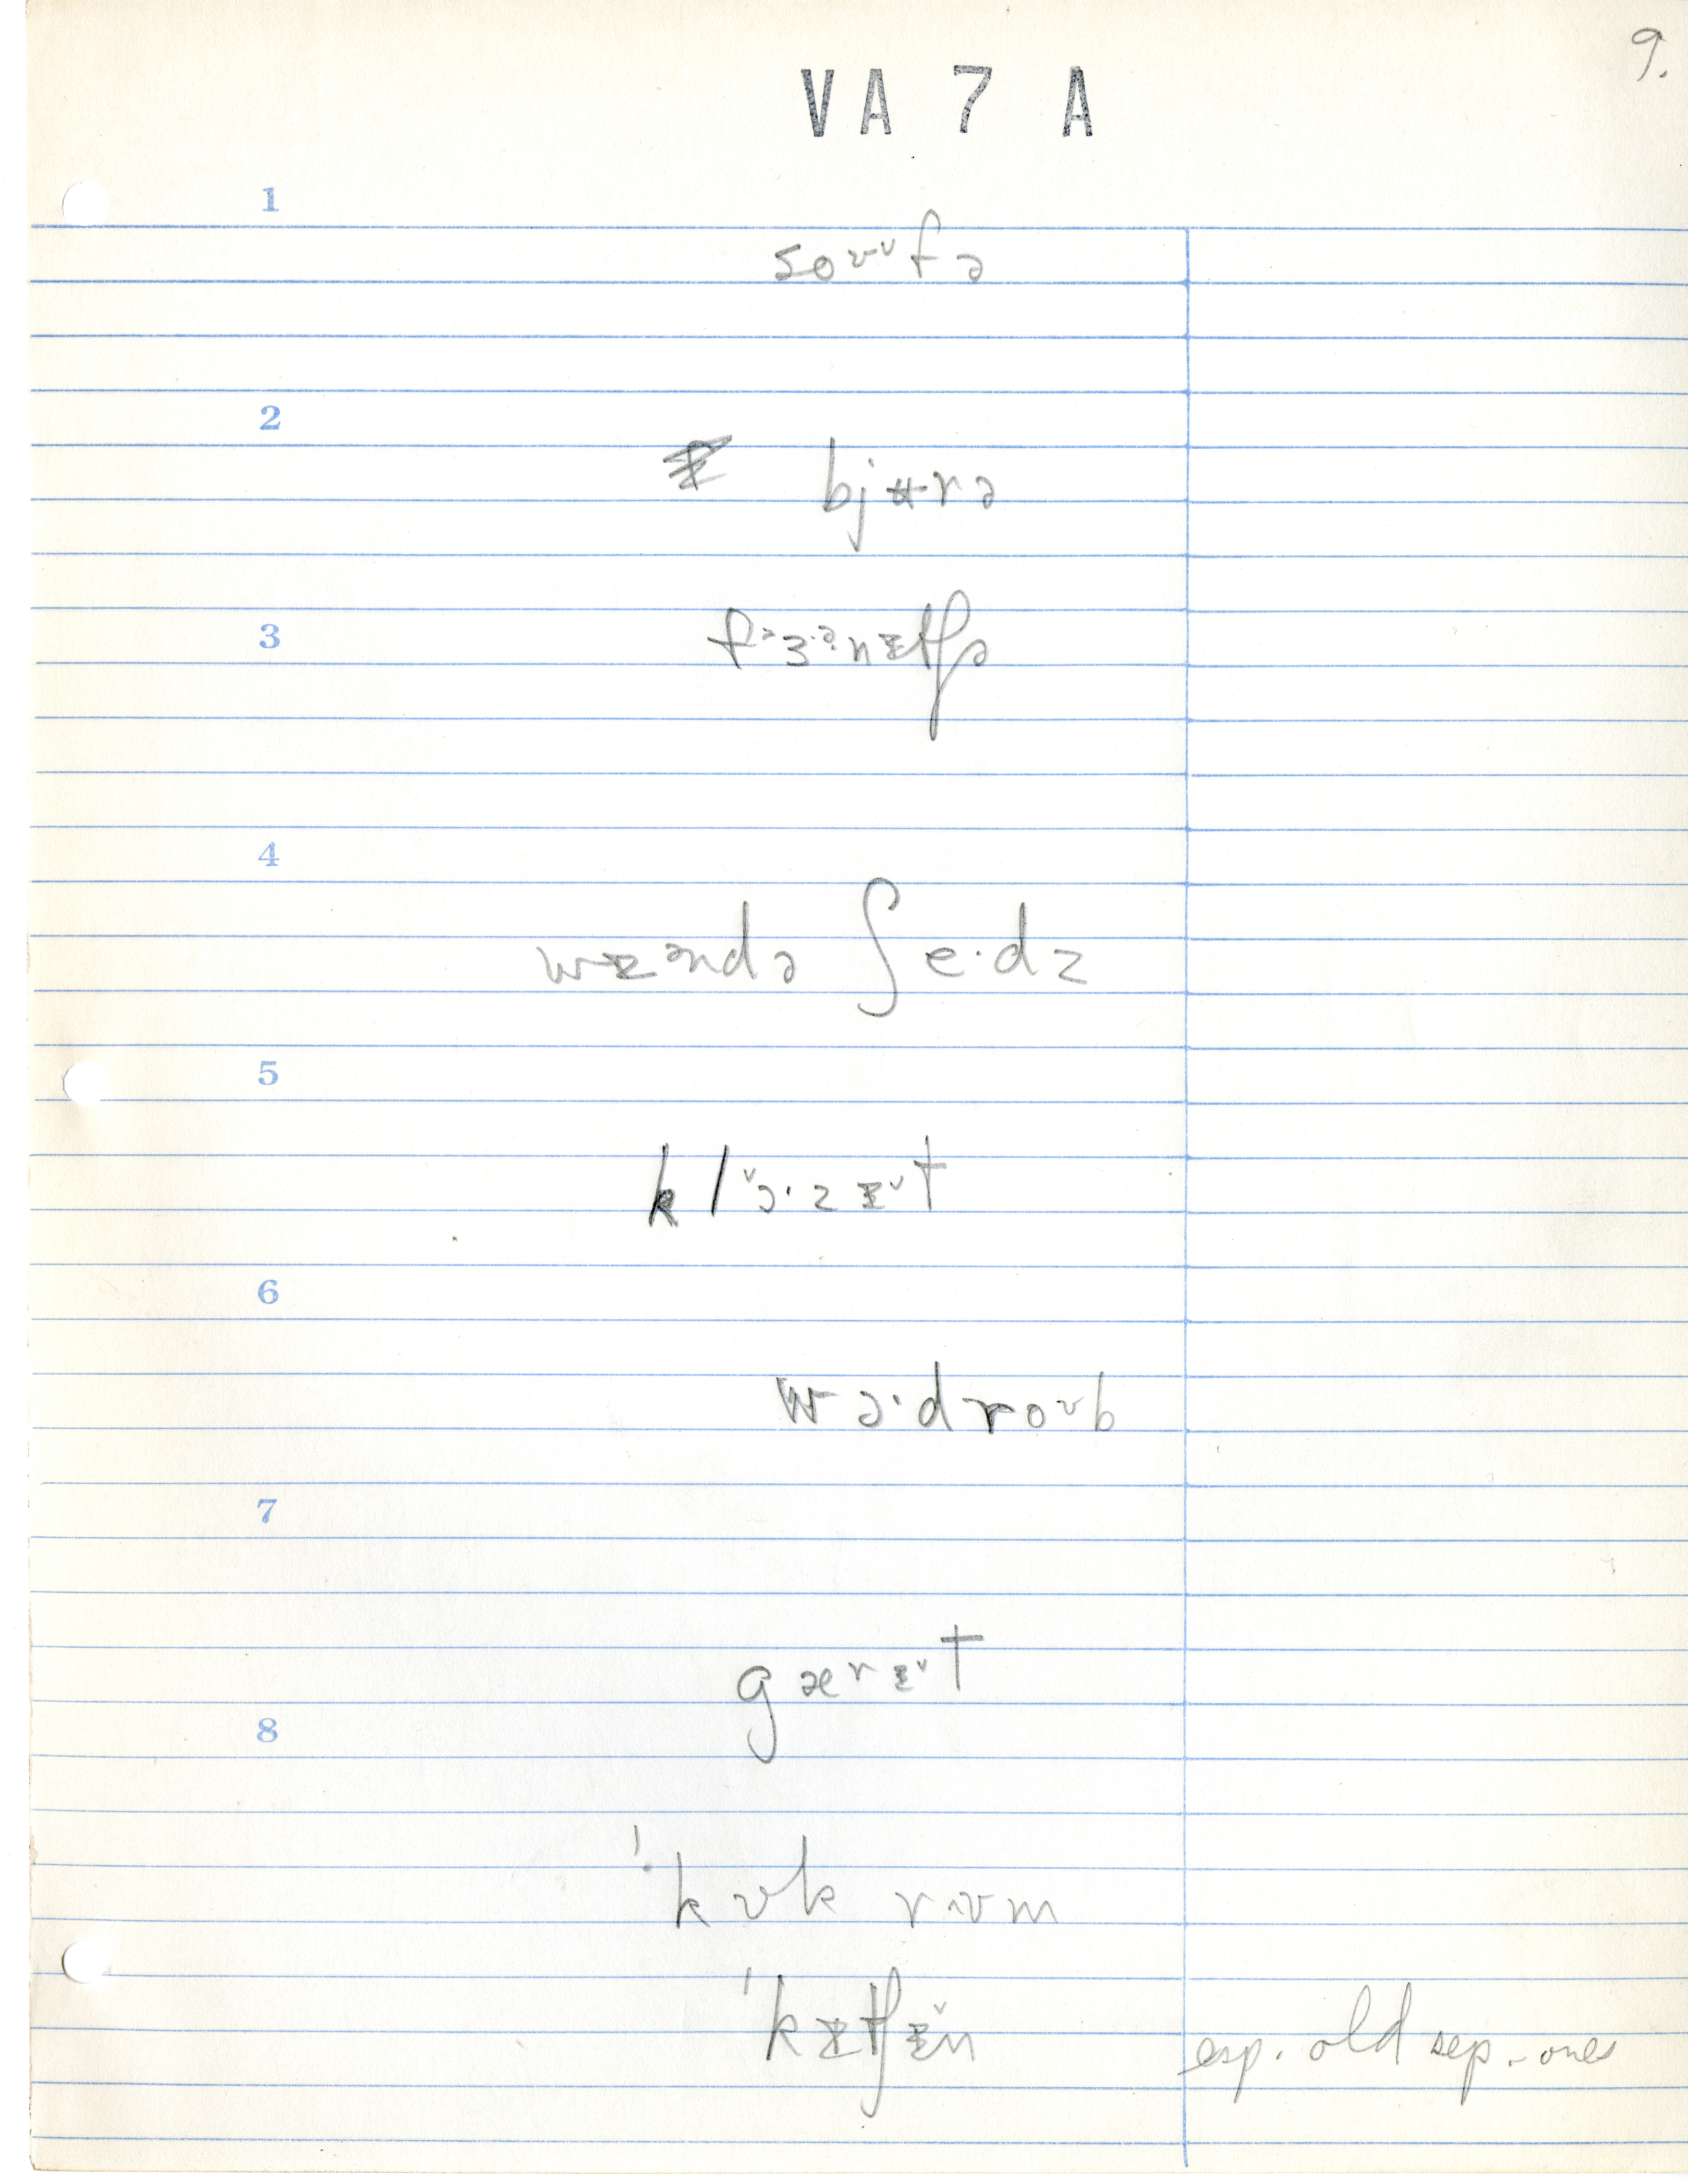 9.
VA 7 A
1
soᶷᵛfə
2
bjʉrə
3
fᵊɜ·ᵊnɪtʃə
4
wɪəndə ʃe·dz
5
klᵛɔ·zɪᵛt
6
wɔ·droᶷb
7
gærɪᵛt
8
ˈkʊk rʊm
ˈkɪtʃɪ̌n esp. old sep. ones